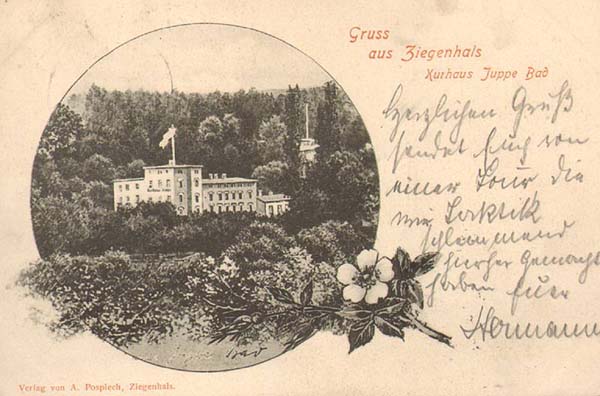 Gruss
aus Ziegenhals
Kurhaus Juppe Bad
Herzlichen Gruß
sendet Euch von
einer Tour die
wir
hierher gemacht
haben Euer
Hermann
Bad
Verlag von A. Pospiech, Ziegenhals.